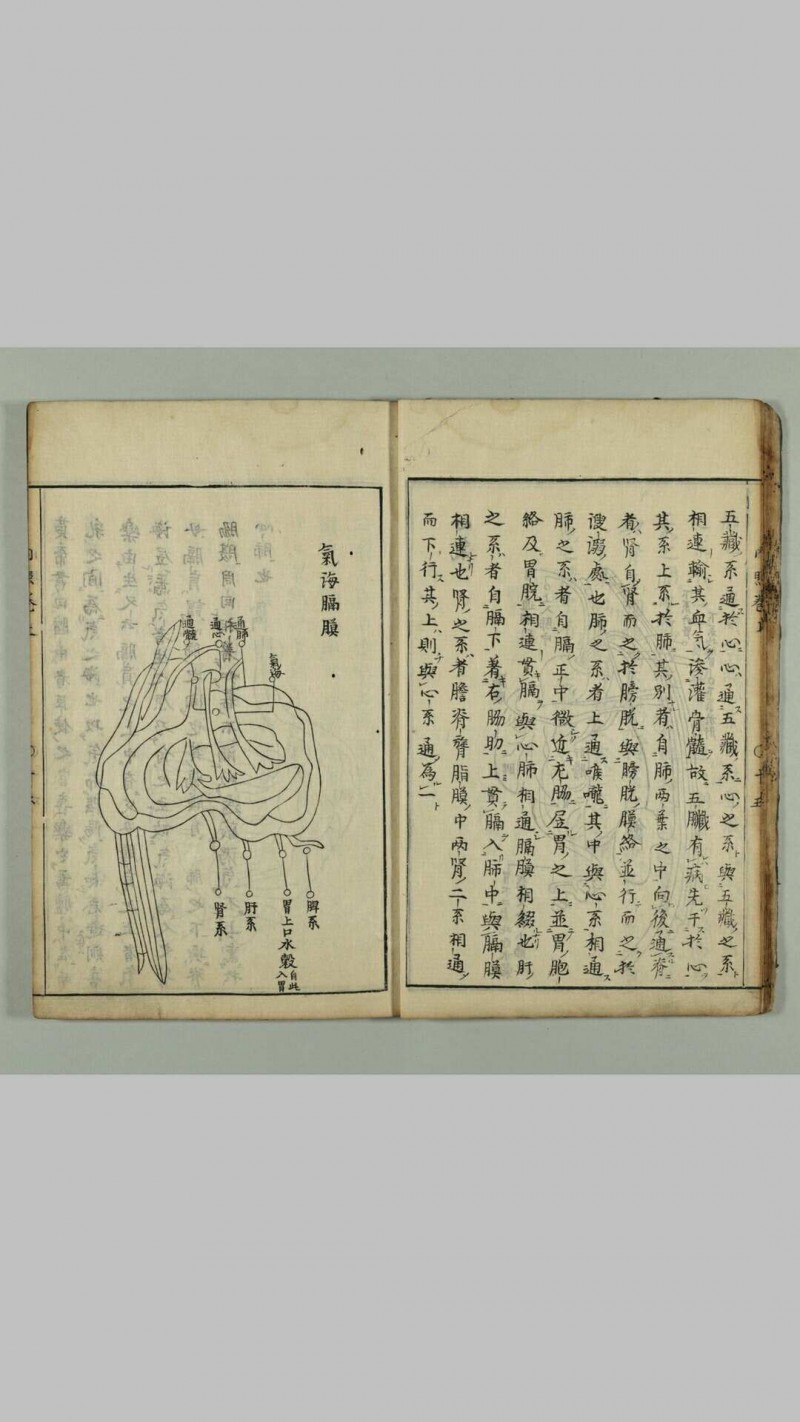 五臟系通於心心通五臟系心之系與五臟之系
相連輸其血氣滲灌骨髓故五臟有病先干於心
其系上系於肺其別者自肺兩葉之中向後通脊
者腎自腎而之於膀胱與膀胱膜絡並行而之於
溲溺處也肺之系者上通喉嚨其中與心系相通
脾之系者自膈正中微近左脇居胃之上並胃胞
絡及胃脘相連貫膈與心肺相通膈膜相綴也肝
之系者自膈下著右脇肋上貫膈入肺中與膈膜
相連也腎之系者膽脊膂脂膜中兩腎二系相通
而下行其上則與心系通為一
氣海膈膜
氣海
通肺
通心
通髓
脾系
胃上口水穀自此入胃
肝系
腎系